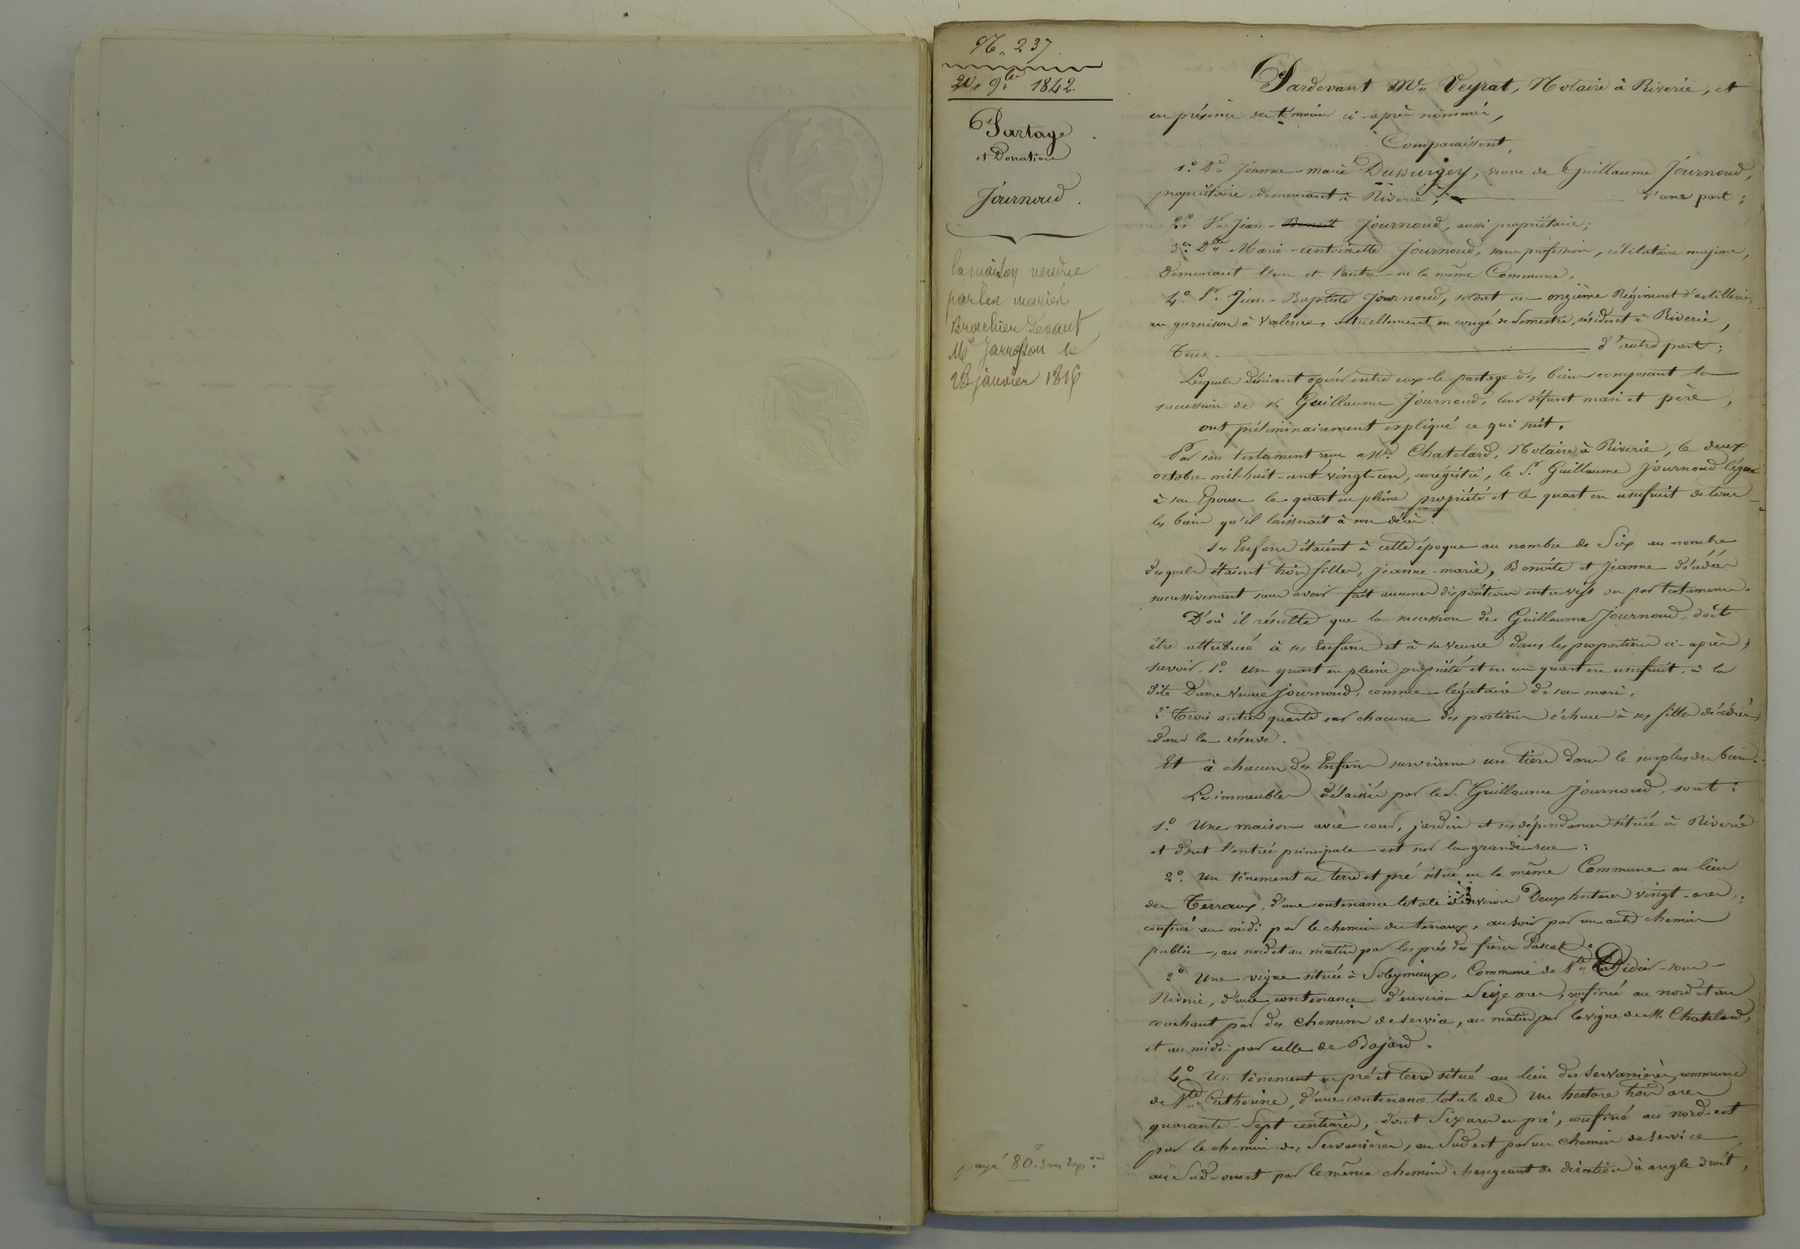 N. 237
9.bre 1842.
Partage
et Donation
Journoud.
la maison vendue
par les mariés
Brachier devant
Me Jarrosson le
28 janvier 18
payé 80.
Pardevant Me. Veyrat, Notaire à Riverie, et
en présence des témoins ci-après nommés,
Comparaissent,
1.° De Jeanne-marie Dussurgey, veuve de Guillaume Journoud,
propriétaire demeurant à Riverie, d'une part;
2.° Sr Jean- Benoit Journoud, aussi propriétaire;
3.° Dlle Marie-antoinette Journoud, sans profession, célibataire majeure,
demeurant l'un et l'autre en la même Commune.
4.° Sr. Jean-Baptiste Journoud, soldat au onzième Régiment d'artillerie,
en garnison à Valence, actuellement en congé de semestre, résidant à Riverie,
Tous d'autre part;
Lesquels désirant opérer entre eux le partage des biens composant la
succession de Sr. Guillaume Journoud, leur défunt mari et père,
ont préliminairement expliqué ce qui suit.
Par son testament reçu Me. Chatelard, Notaire à Riverie, le deux
octobre mil-huit-cent-vingt-un, enrégistré, le Sr. Guillaume Journoud légua
à son Epouse le quart en pleine propriété et le quart en usufruit de tous
les biens qu'il laisserait à son décès.
Ses Enfans étaient à cette époque au nombre de Six au nombre
desquels étaient trois filles, Jeanne-marie, Benoite et Jeanne décédées
successivement sans avoir fait aucunes dispositions entre-vifs ou par testamens.
D'où il résulte que la succession de Guillaume Journoud, doit
être attribuée à ses Enfans et à sa veuve dans les proportions ci-après,
savoir, 1.° Un quart en pleine propriété et en un quart en usufruit, à la
dite Dame Veuve Journoud, comme légataire de son mari.
2.° Trois autres quarts sur chacune des portions échues à ses filles décédées,
dans la réserve.
Et à chacun des Enfans survivans un tiers dans le surplus des biens.
Les immeubles délaissés par le S. Guillaume Journoud, sont:
1.° Une maison avec cour, jardin et ses dépendances située à Riverie
et dont l'entrée principale est sur la grande rue:
2.° Un tènement en terre et pré situé en la même Commune au lieu
des Terraux, d'une contenance totale d'environ Deux hectares vingt-ares;
confiné au midi par le chemin des terraux, au soir par un autre chemin
public, au nord et au matin par les prés des frères Pascal:
3.° Une vigne située à Solymieux, Commune de St Didier-sous-
Riverie, d'une contenance d'environ Seize ares, confinée au nord et au
couchant par des chemins de service, au matin par la vigne de M. Chatelard,
et au midi par celle de Bajard.
4.° Un tènement en pré et terre situé au lieu des Servanières, commune
de Ste Catherine, d'une contenance totale de Un hectare trois ares
quarante-Sept centiares, dont Six ares en pré, confiné au nord-est
par le chemin des Servanières, au Sud est par un chemin de service,
au Sud-ouest par le même chemin changeant de direction à angle droit,